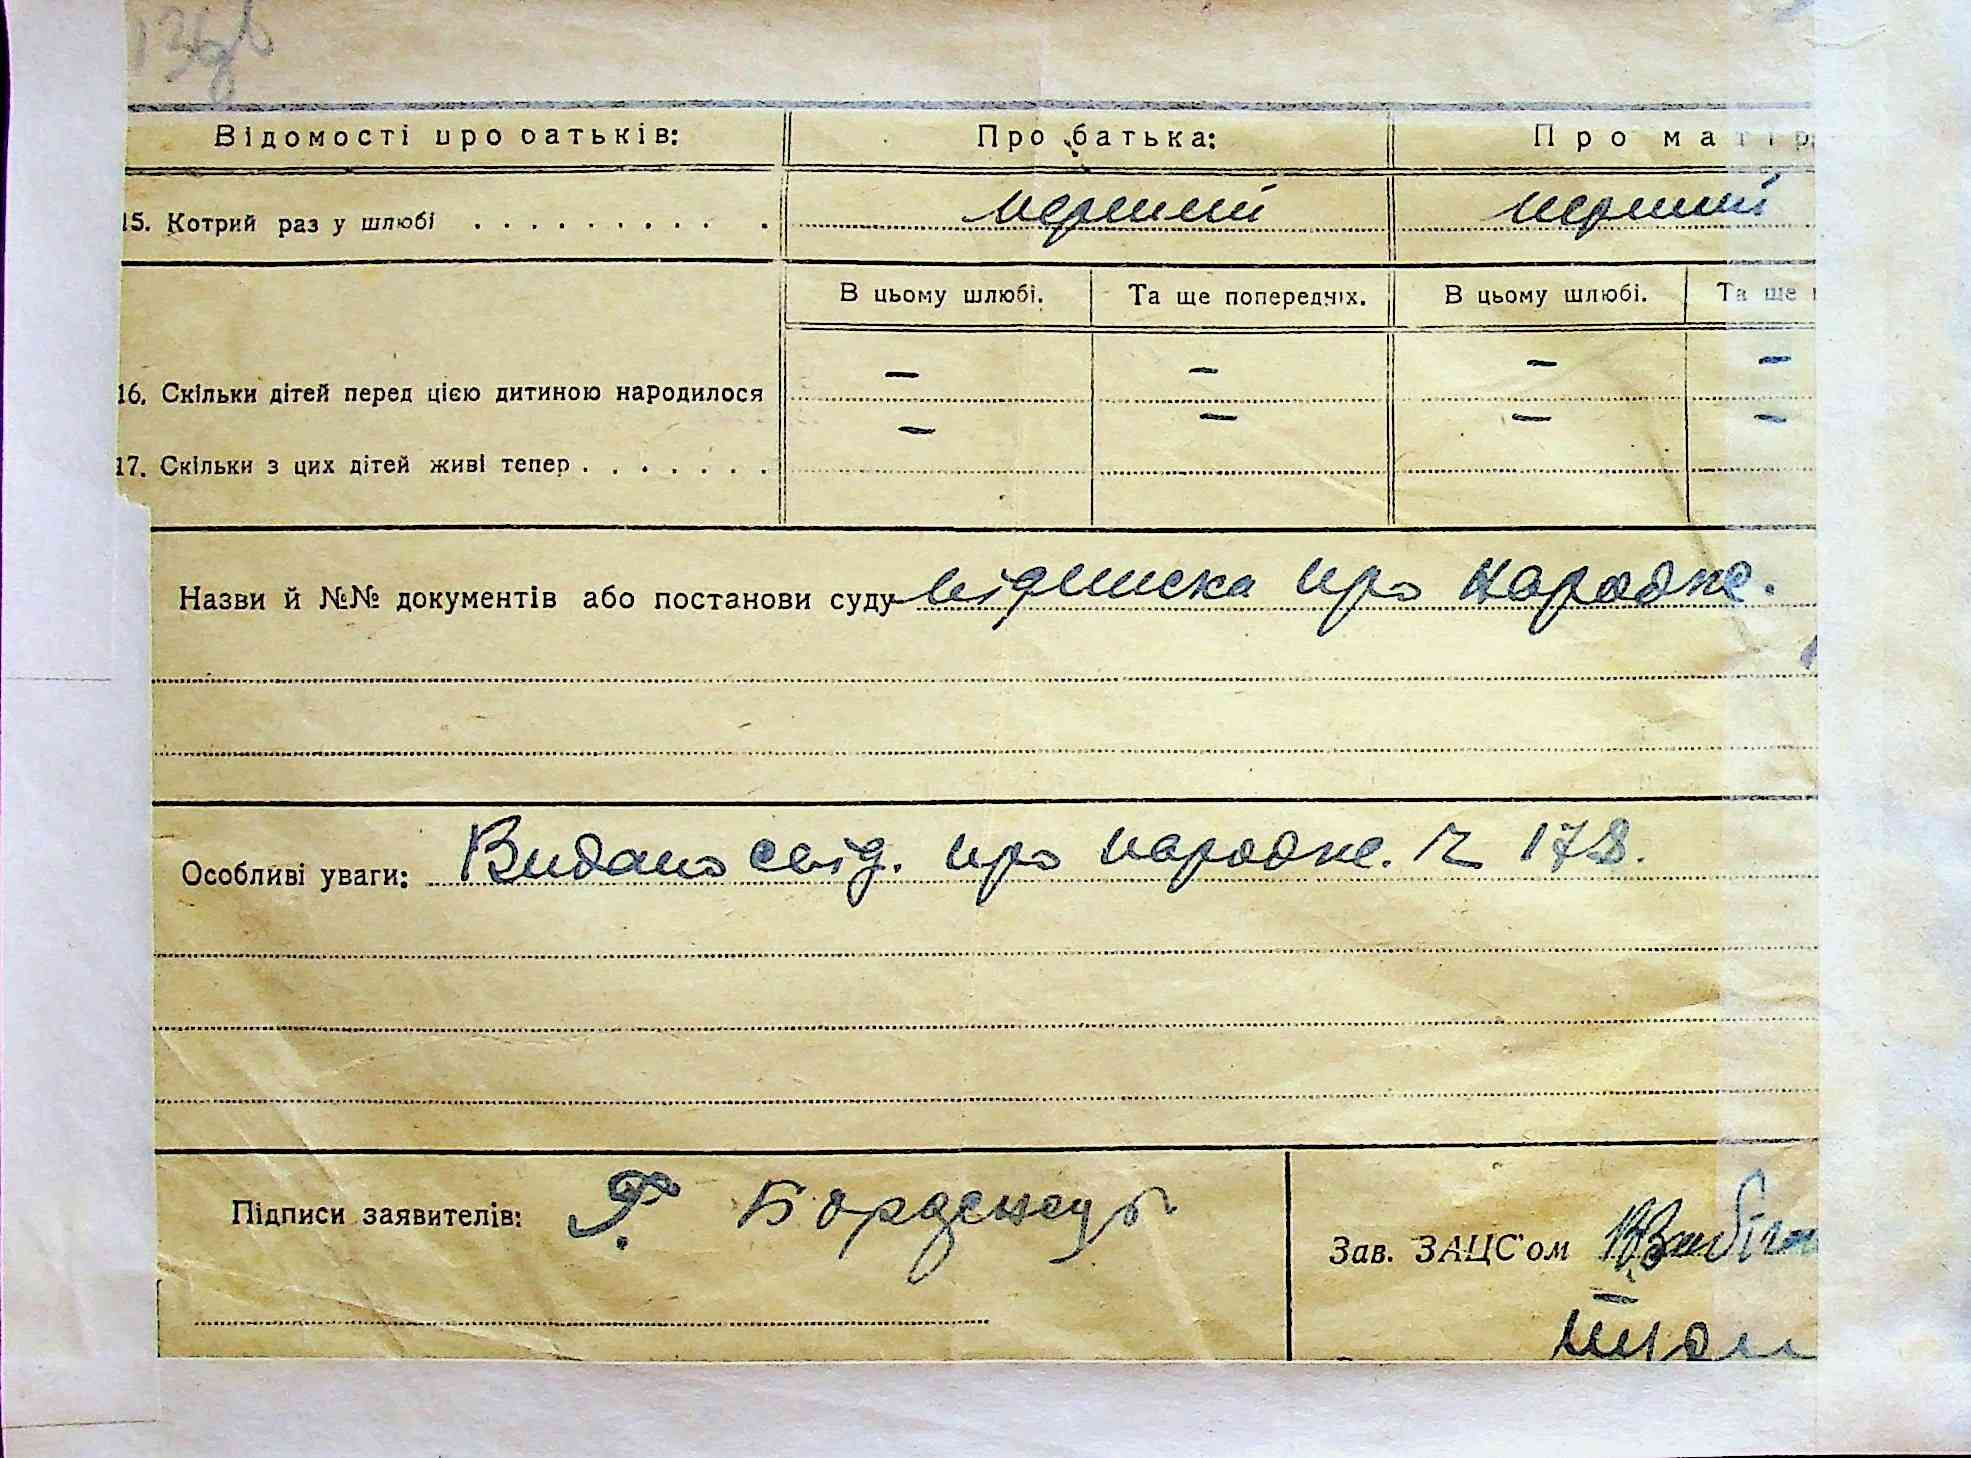 Відомості про батьків: Про батька: Про матір
15. Котрий раз у шлюбі . . . . . . . . . . перший перший
В цьому шлюбі. Та ще попередніх. В цьому шлюбі. Та ще
– – – –
16. Скільки дітей перед цією дитиною народилося
– – – –
17. Скільки з цих дітей живі тепер . . . . . . .
Назви й №№ документів або постанови суду підписка про народже.
Особливі уваги: Видано свід. про народже. Ч 178.
Підписи заявителів:
Зав. ЗАЦС'ом